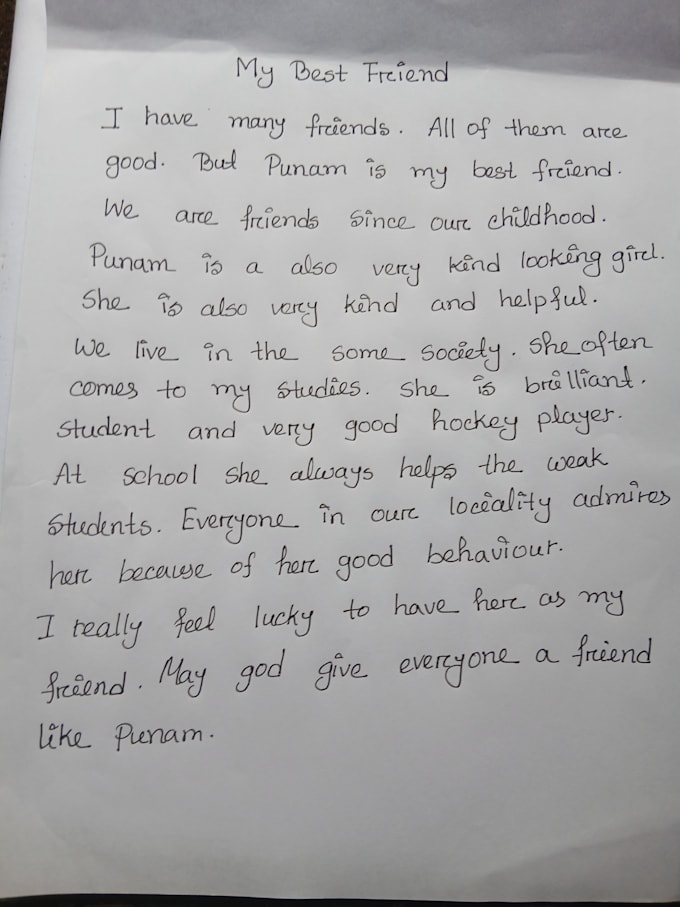 My Best Friend
I have many friends. All of them are
good. But Punam is my best friend.
We are friends Since our childhood.
Punam is a also very kind looking girl.
She is also very kind and helpful.
We live in the some society. She often
comes to my studies. She is brilliant.
Student and very good hockey player.
At school she always helps the weak
Students. Everyone in our lociality admires
her because of her good behaviour.
I really feel lucky to have here as my
friend. May god give everyone a friend
like Punam.